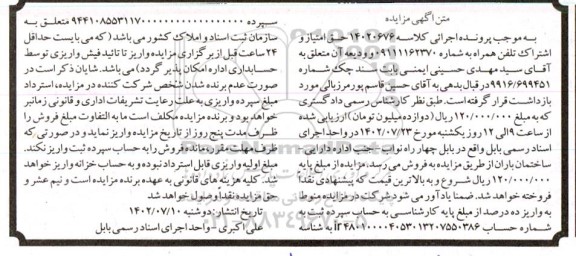 متن آگهی مزایده
به موجب پرونده اجرائی کلاسه ۱۴۰۲۰۶۷۶ حق امتیاز و
اشتراک تلفن همراه به شماره ۰۹۱۱۱۱۶۲۳۷۰ و ودیعه آن متعلق به
آقای سید مهدی حسینی ایمنی بابت سند چک شماره
۹۹۱۶/۶۹۹۴۵۱ در قبال بدهی به آقای حسین قاسم پور مرزبالی مورد
بازداشت قرار گرفته است. طبق نظر کارشناس رسمی دادگستری
که به مبلغ ۱۲۰/۰۰۰/۰۰۰ ریال (دوازده میلیون تومان) ارزیابی شده
از ساعت ۹ الی ۱۲ روز یکشنبه مورخ ۱۴۰۲/۰۷/۲۳ در واحد اجرای
اسناد رسمی بابل واقع در بابل چهار راه نواب جنب اداره دارایی -
ساختمان باران از طریق مزایده به فروش می رسد. مزایده از مبلغ پایه
۱۲۰/۰۰۰/۰۰۰ ریال شروع و به بالاترین قیمت که پیشنهادی نقدا
فروخته خواهد شد. ضمنا یادآور می شود شرکت در مزایده منوط
به واریز ده درصد از مبلغ پایه کارشناسی به حساب سپرده ثبت به
شماره حساب ir۴۸۰۱۰۰۰۰۴۰۵۳۰۱۳۲۰۷۵۵۰۳۸۶ به شناسه
سپرده ۹۴۴۱۰۸۵۵۳۱۱۷۰۰۰۰۰۰۰۰۰۰۰۰۰۰۰۰۰۰ متعلق به
سازمان ثبت اسناد و املاک کشور می باشد (که می بایست حداقل
۲۴ ساعت قبل از برگزاری مزایده واریز تا تائید فیش واریزی توسط
حسابداری اداره امکان پذیر گردد) می باشد. شایان ذکر است در
صورت عدم برنده شدن شخص شرکت کننده در مزایده استرداد
مبلغ سپرده واریزی به علت رعایت تشریفات اداری و قانونی زمانبر
خواهد بود و برنده مزایده مکلف است ما به التفاوت مبلغ فروش را
ظرف مدت پنج روز از تاریخ مزایده واریز نماید و در صورتی که
ظرف مهلت مقرر مانده فروش را به حساب سپرده ثبت واریز نکند.
مبلغ اولیه واریزی قابل استرداد نبوده و به حساب خزانه واریز خواهد
شد. کلیه هزینه های قانونی به عهده برنده مزایده است و نیم عشر و
حق مزایده نقدا وصول خواهد شد
تاریخ انتشار: دوشنبه ۱۴۰۲/۰۷/۱۰
علی اکبری - واحد اجرای اسناد رسمی بابل